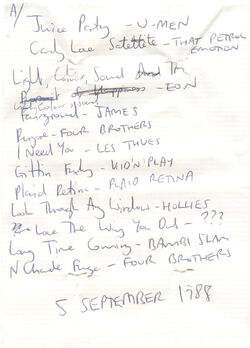 A/
Juice Party - U-MEN
Candy Love Satellite - THAT PETROL
EMOTION
Light, Colour, Sound
- EON
Fairground - JAMES
- FOUR BROTHERS
I Need You - LES THUGS
Gittin Funky - KID'N'PLAY
Plaid Retina - PLAID RETINA
Look Through Any Window - HOLLIES
Love The Way You Dub - ???
Long Time Coming - BAMBI SLAM
- FOUR BROTHERS
5 SEPTEMBER 1988